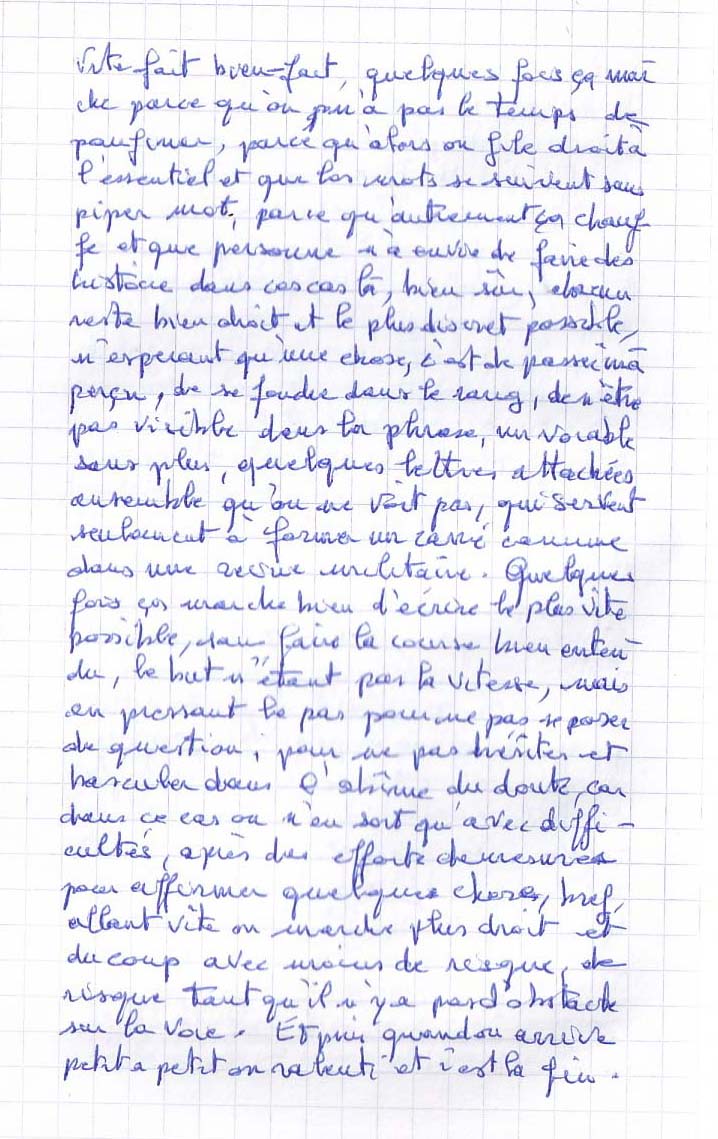 Vite fait bien-fait, quelques fois ça mar
che parce qu'on n'a pas le temps de
paufiner, parce qu'alors on file droit à
l'essentiel et que les mots se suivent sans
piper mot, parce qu'autrement ça chauf-
fe et que personne n'a envie de faire des
histoire dans ces cas là, bien sûr, chacun
reste bien droit et le plus discret possible,
n'espérant qu'une chose, c'est de passer ina
perçu, de se fondre dans le rang, de n'être
pas visible dans la phrase, un vocable
sans plus, quelques lettres attachées
ensemble qu'on ne voit pas, qui servent
seulement à former un carré comme
dans une revue militaire. Quelques
fois ça marche bien d'écrire le plus vite
possible, sans faire la course bien enten
du, le but n'étant pas la vitesse, mais
en pressant le pas pour ne pas se poser
de question, pour ne pas hésiter et
basculer dans l'abîme du doute, car
dans ce cas on n'en sort qu'avec diffi-
cultés, après des efforts démesurés
pour affirmer quelques choses, bref,
allant vite on marche plus droit et
du coup avec moins de risque, de
risque tant qu'il n'y a pas d'obstacle
sur la voie. Et puis quand on arrive
petit a petit on ralenti et c'est la fin.